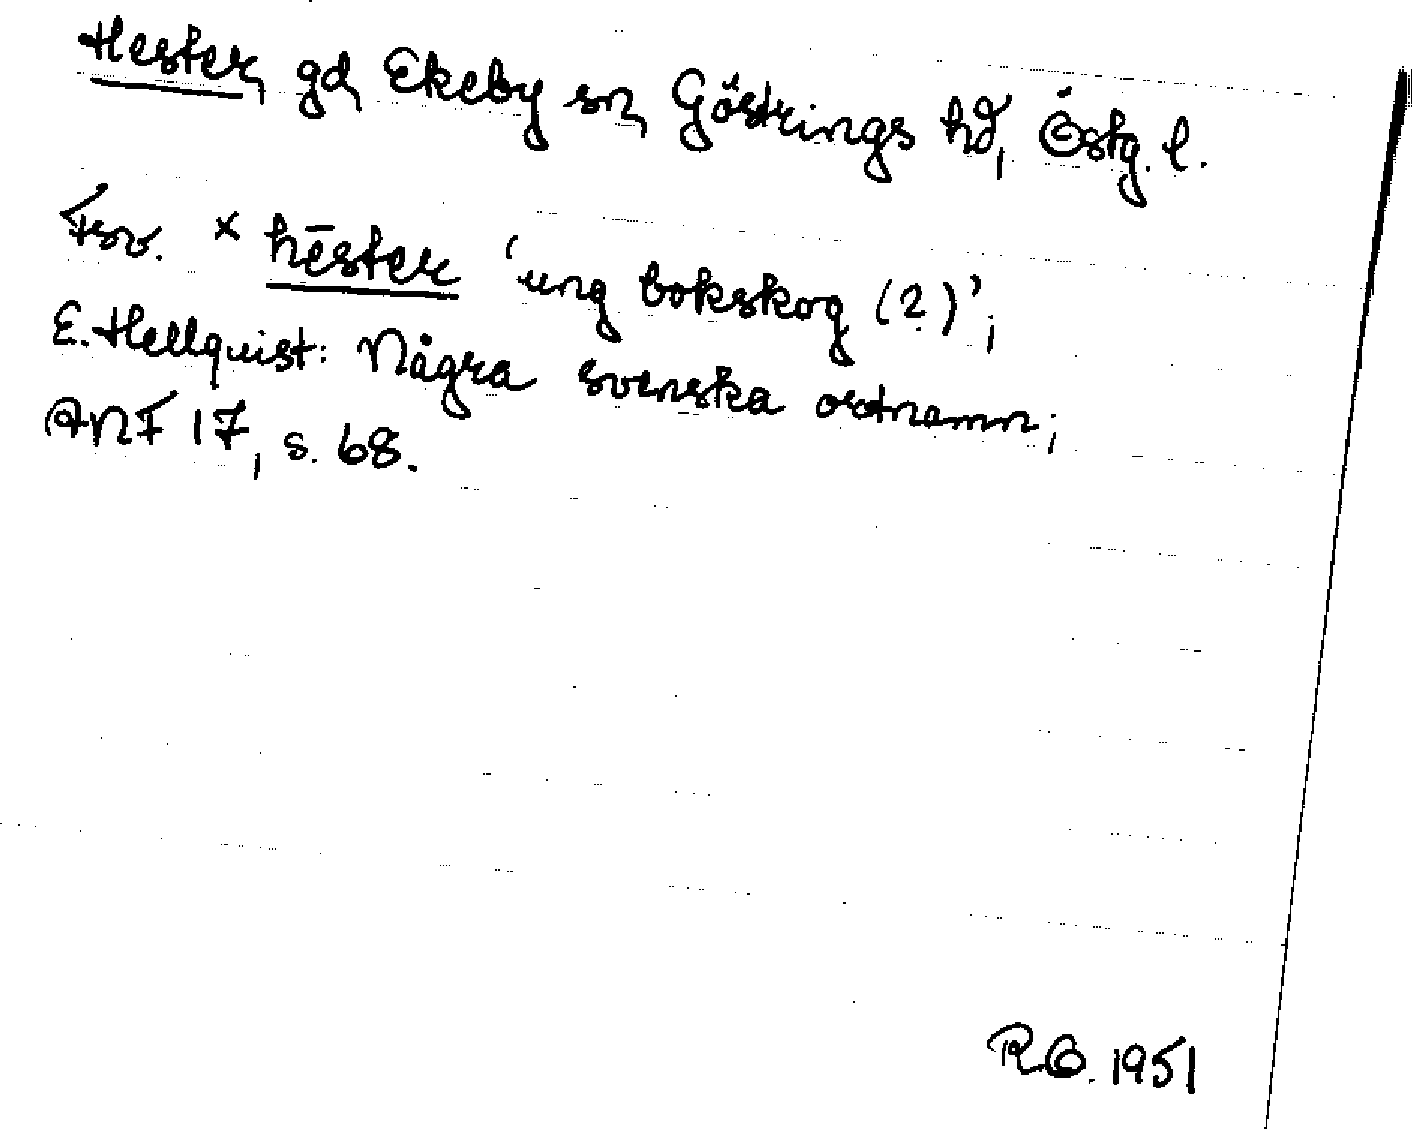 Hester, gd, Ekeby sn, Göstrings hd, Östg. l.
Fsv. × hēster ‘ung bokskog (?)’;
E. Hellquist: Några svenska ortnamn;
ANF 17, s. 68.
R.O. 1951